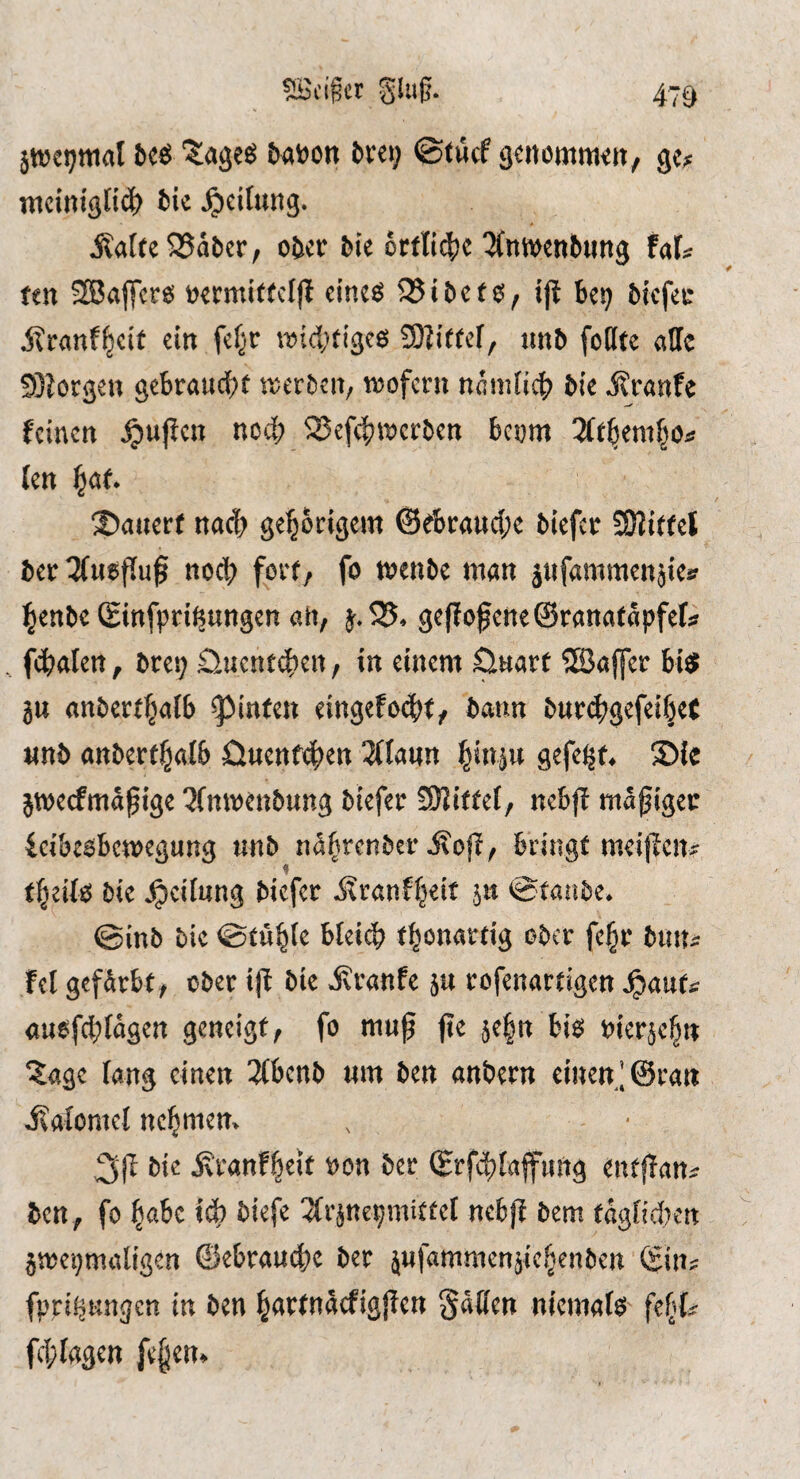 Weißer Fluß. 479
zweymal des Tages davon drey Stück genommen, ge-
meiniglich die Heilung.
Kalte Bäder, oder die örtliche Anwendung kal-
ten Wassers vermittelst eines Bidets, ist bey dieser
Krankheit ein sehr wichtiges Mittel, und sollte alle
Morgen gebraucht werden, wofern nämlich die Kranke
keinen Husten noch Beschwerden beym Athemho-
len hat.
Dauert nach gehörigem Gebrauche dieser Mittel
der Ausfluß noch fort, so wende man zusammenzie-
hende Einspritzungen an, z. B. gestoßene Granatäpfel-
schalen, drey Quentchen, in einem Quart Wasser bis
zu anderthalb Pinten eingekocht, dann durchgeseihet
und anderthalb Quentchen Alaun hinzu gesetzt. Die
zweckmäßige Anwendung dieser Mittel, nebst mäßiger
Leibesbewegung und nährender Kost, bringt meisten-
theils die Heilung dieser Krankheit zu Stande.
Sind die Stühle bleich thonartig oder sehr dun-
kel gefärbt, oder ist die Kranke zu rosenartigen Haut-
ausschlägen geneigt, so muß sie zehn bis vierzehn
Tage lang einen Abend um den andern einen Gran
Kalomel nehmen.
Ist die Krankheit von der Erschlaffung entstan-
den, so habe ich diese Arzneymittel nebst dem täglichen
zweymaligen Gebrauche der zusammenziehenden Ein-
spritzungen in den hartnäckigsten Fällen niemals fehl-
schlagen sehen.